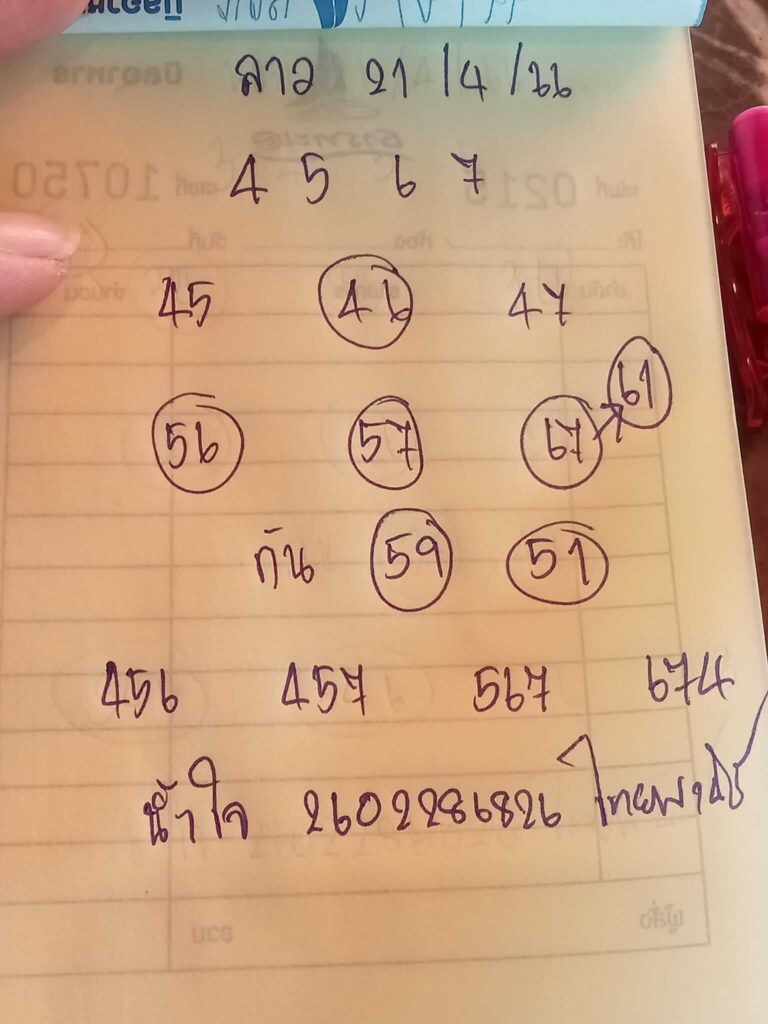 ลาว 21/4/66
4 5 6 7
45 46 47
61
56 57 67
กัน 59 51
456 457 567 674
น้ำใจ 2602286826 ไทยพาณิช